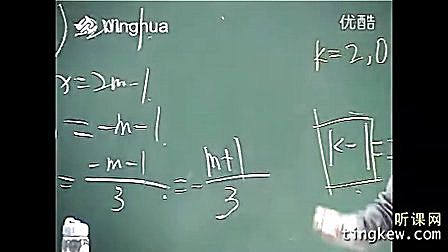 Xinghua
优酷
k=2,0
x=2m-1
=-m-1
|k-1|=
= -m-1/3 = -m+1/3
听课网
tingkew.com